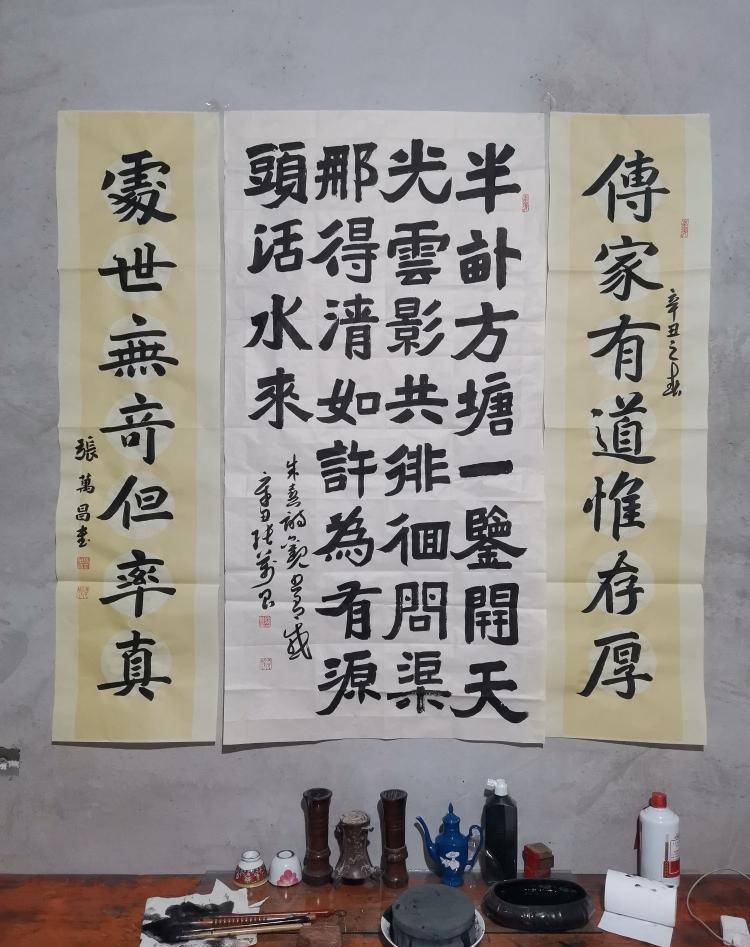 傳家有道惟存厚
辛丑之春
半畝方塘一鑒開天
光雲影共徘徊問渠
那得清如許為有源
頭活水來
朱熹詩觀書有感
辛丑張萬昌
處世無奇但率真
張萬昌書